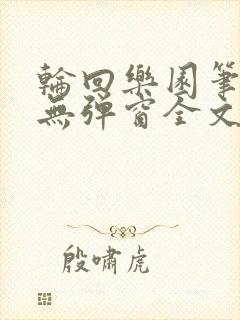 輪回樂園筆
無彈窗全文
殷嘯虎